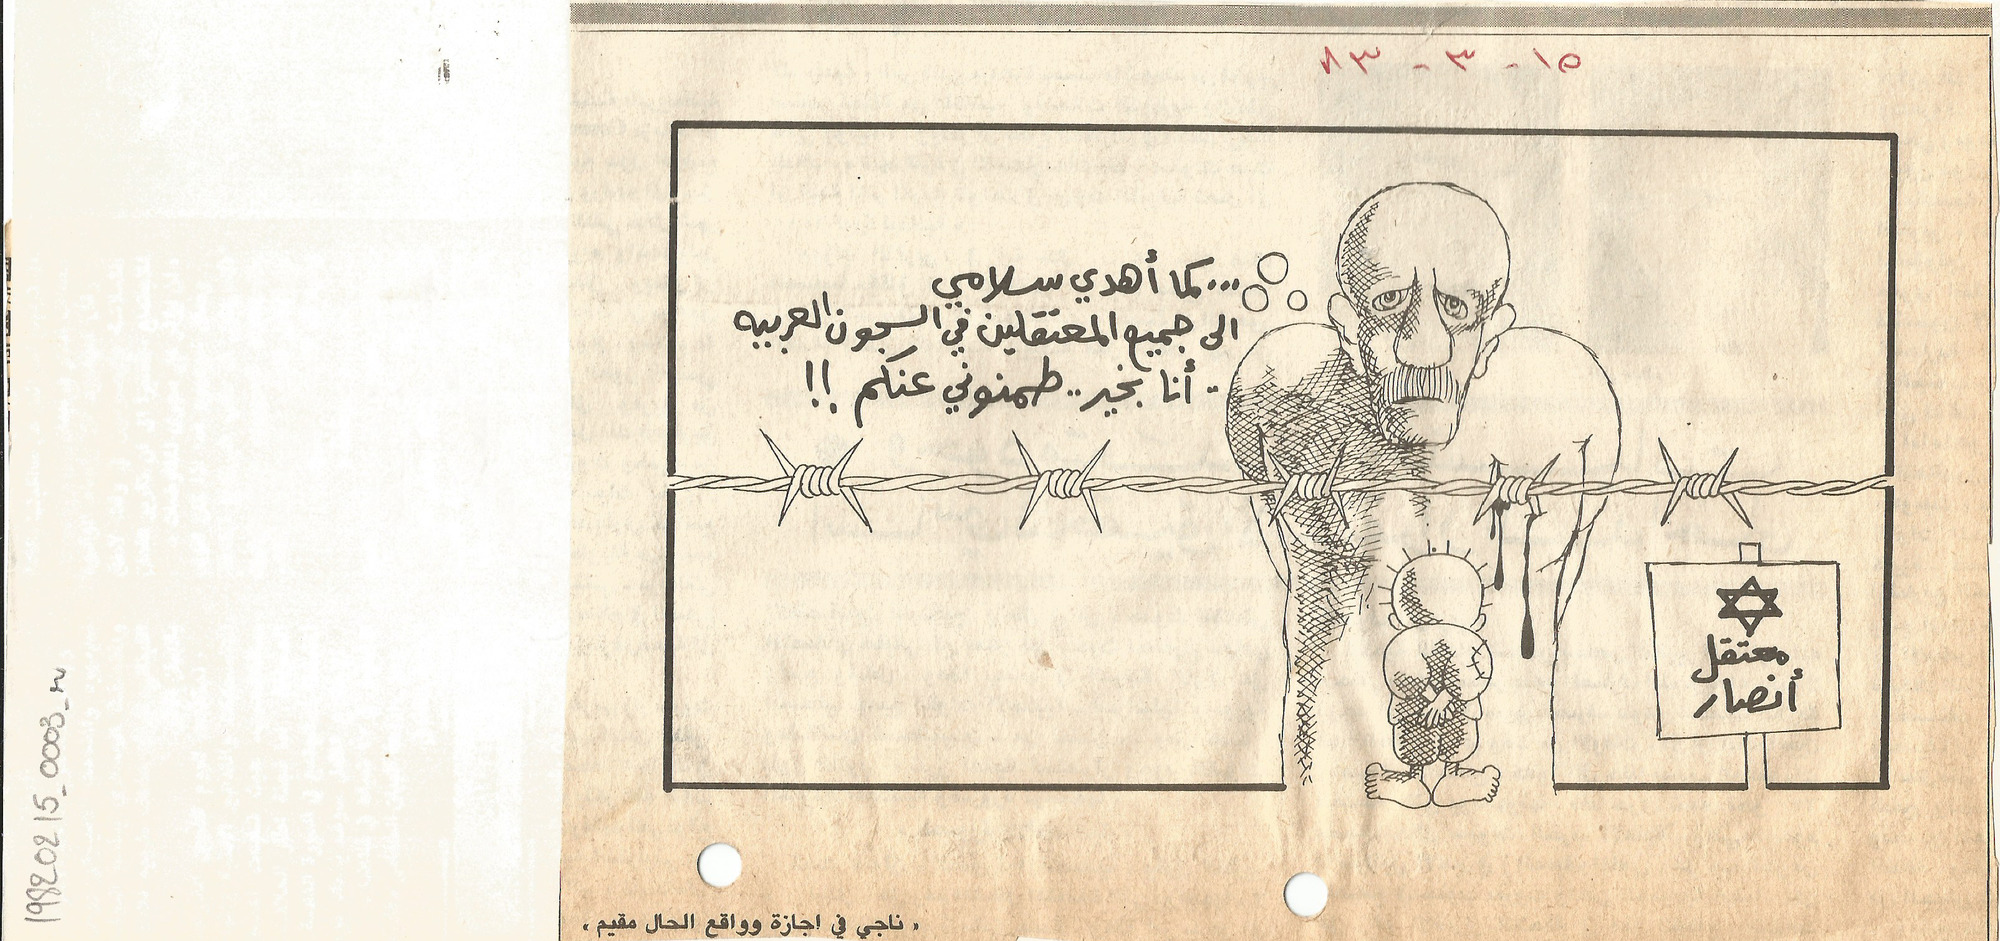 ١٥-٣-٨٣
... كما أهدي سلامي
الى جميع المعتقلين في السجون العربيه
.. أنا بخير .. طمنوني عنكم !!
معتقل
أنصار
« ناجي في اجازة وواقع الحال مقيم »
19820215_0003_ru